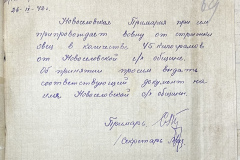 26-II-42г.
69
Новоселовская Примария при сем
препровождает вовну от стрижки
овец в количестве 45 килограмов
от Новоселовской с/х общины.
О принятии просим выдать
соответствующий документ на
имя Новоселовской с/х общины.
Примарь
/секретарь